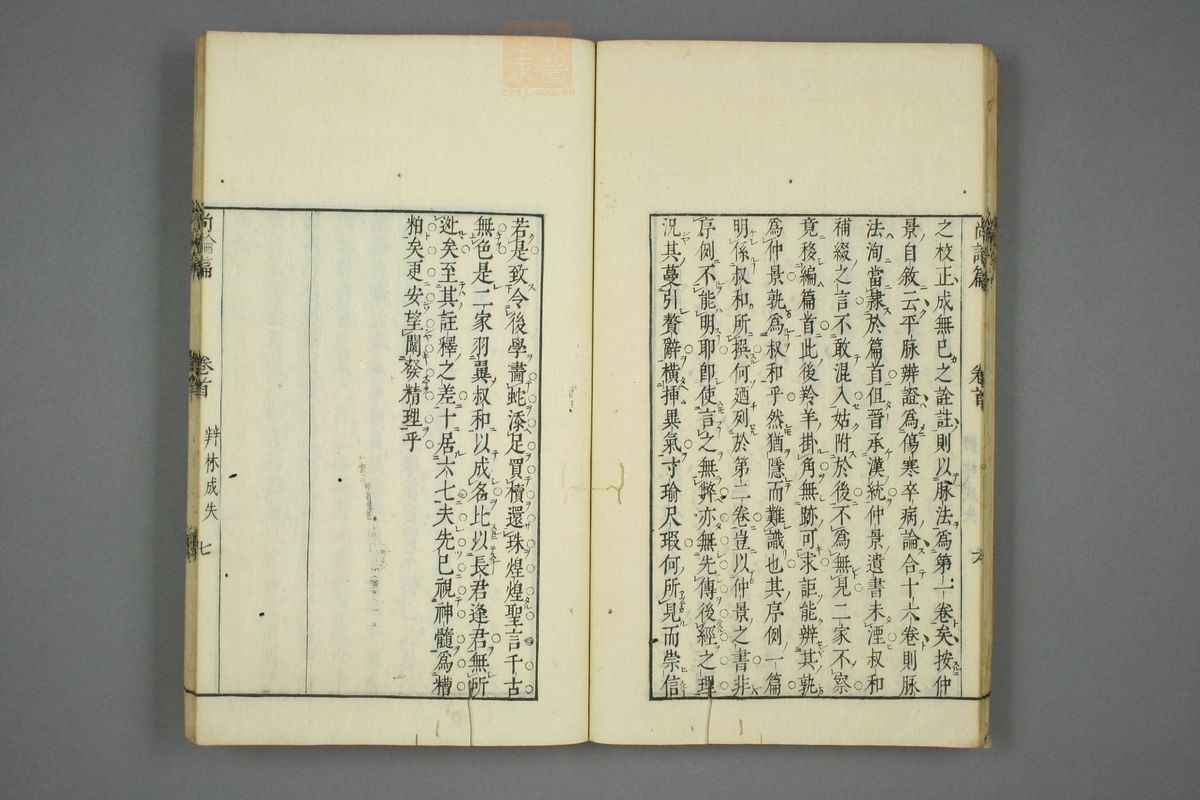 之校正成無已之詮註則以脉法爲第一卷矣按仲
景自敘云平脉辨證爲傷寒卒病論合十六卷則脉
法洵當隷於篇首但晉承漢統仲景遺書未湮叔和
補綴之言不敢混入姑附於後不爲無見二家不察
竟移編篇首此後羚羊掛角無跡可求詎能辨其孰
爲仲景孰爲叔和乎然猶隱而難識也其序例一篇
明係叔和所撰何廼列於第二卷豈以仲景之書非
序例不能明耶卽使言之無弊亦無先傳後經之理
況其蔓引贅辭橫挿異氣寸瑜尺瑕何所見而崇信
尚論篇 卷首 六
若是致令後學畵蛇添足買櫝還珠煌煌聖言千古
無色是二家羽翼叔和以成名比以長君逢君無所
逃矣至其註釋之差十居六七夫先已視神髓爲糟
粕矣更安望闡發精理乎
尚論篇 卷首 辨林成失 七